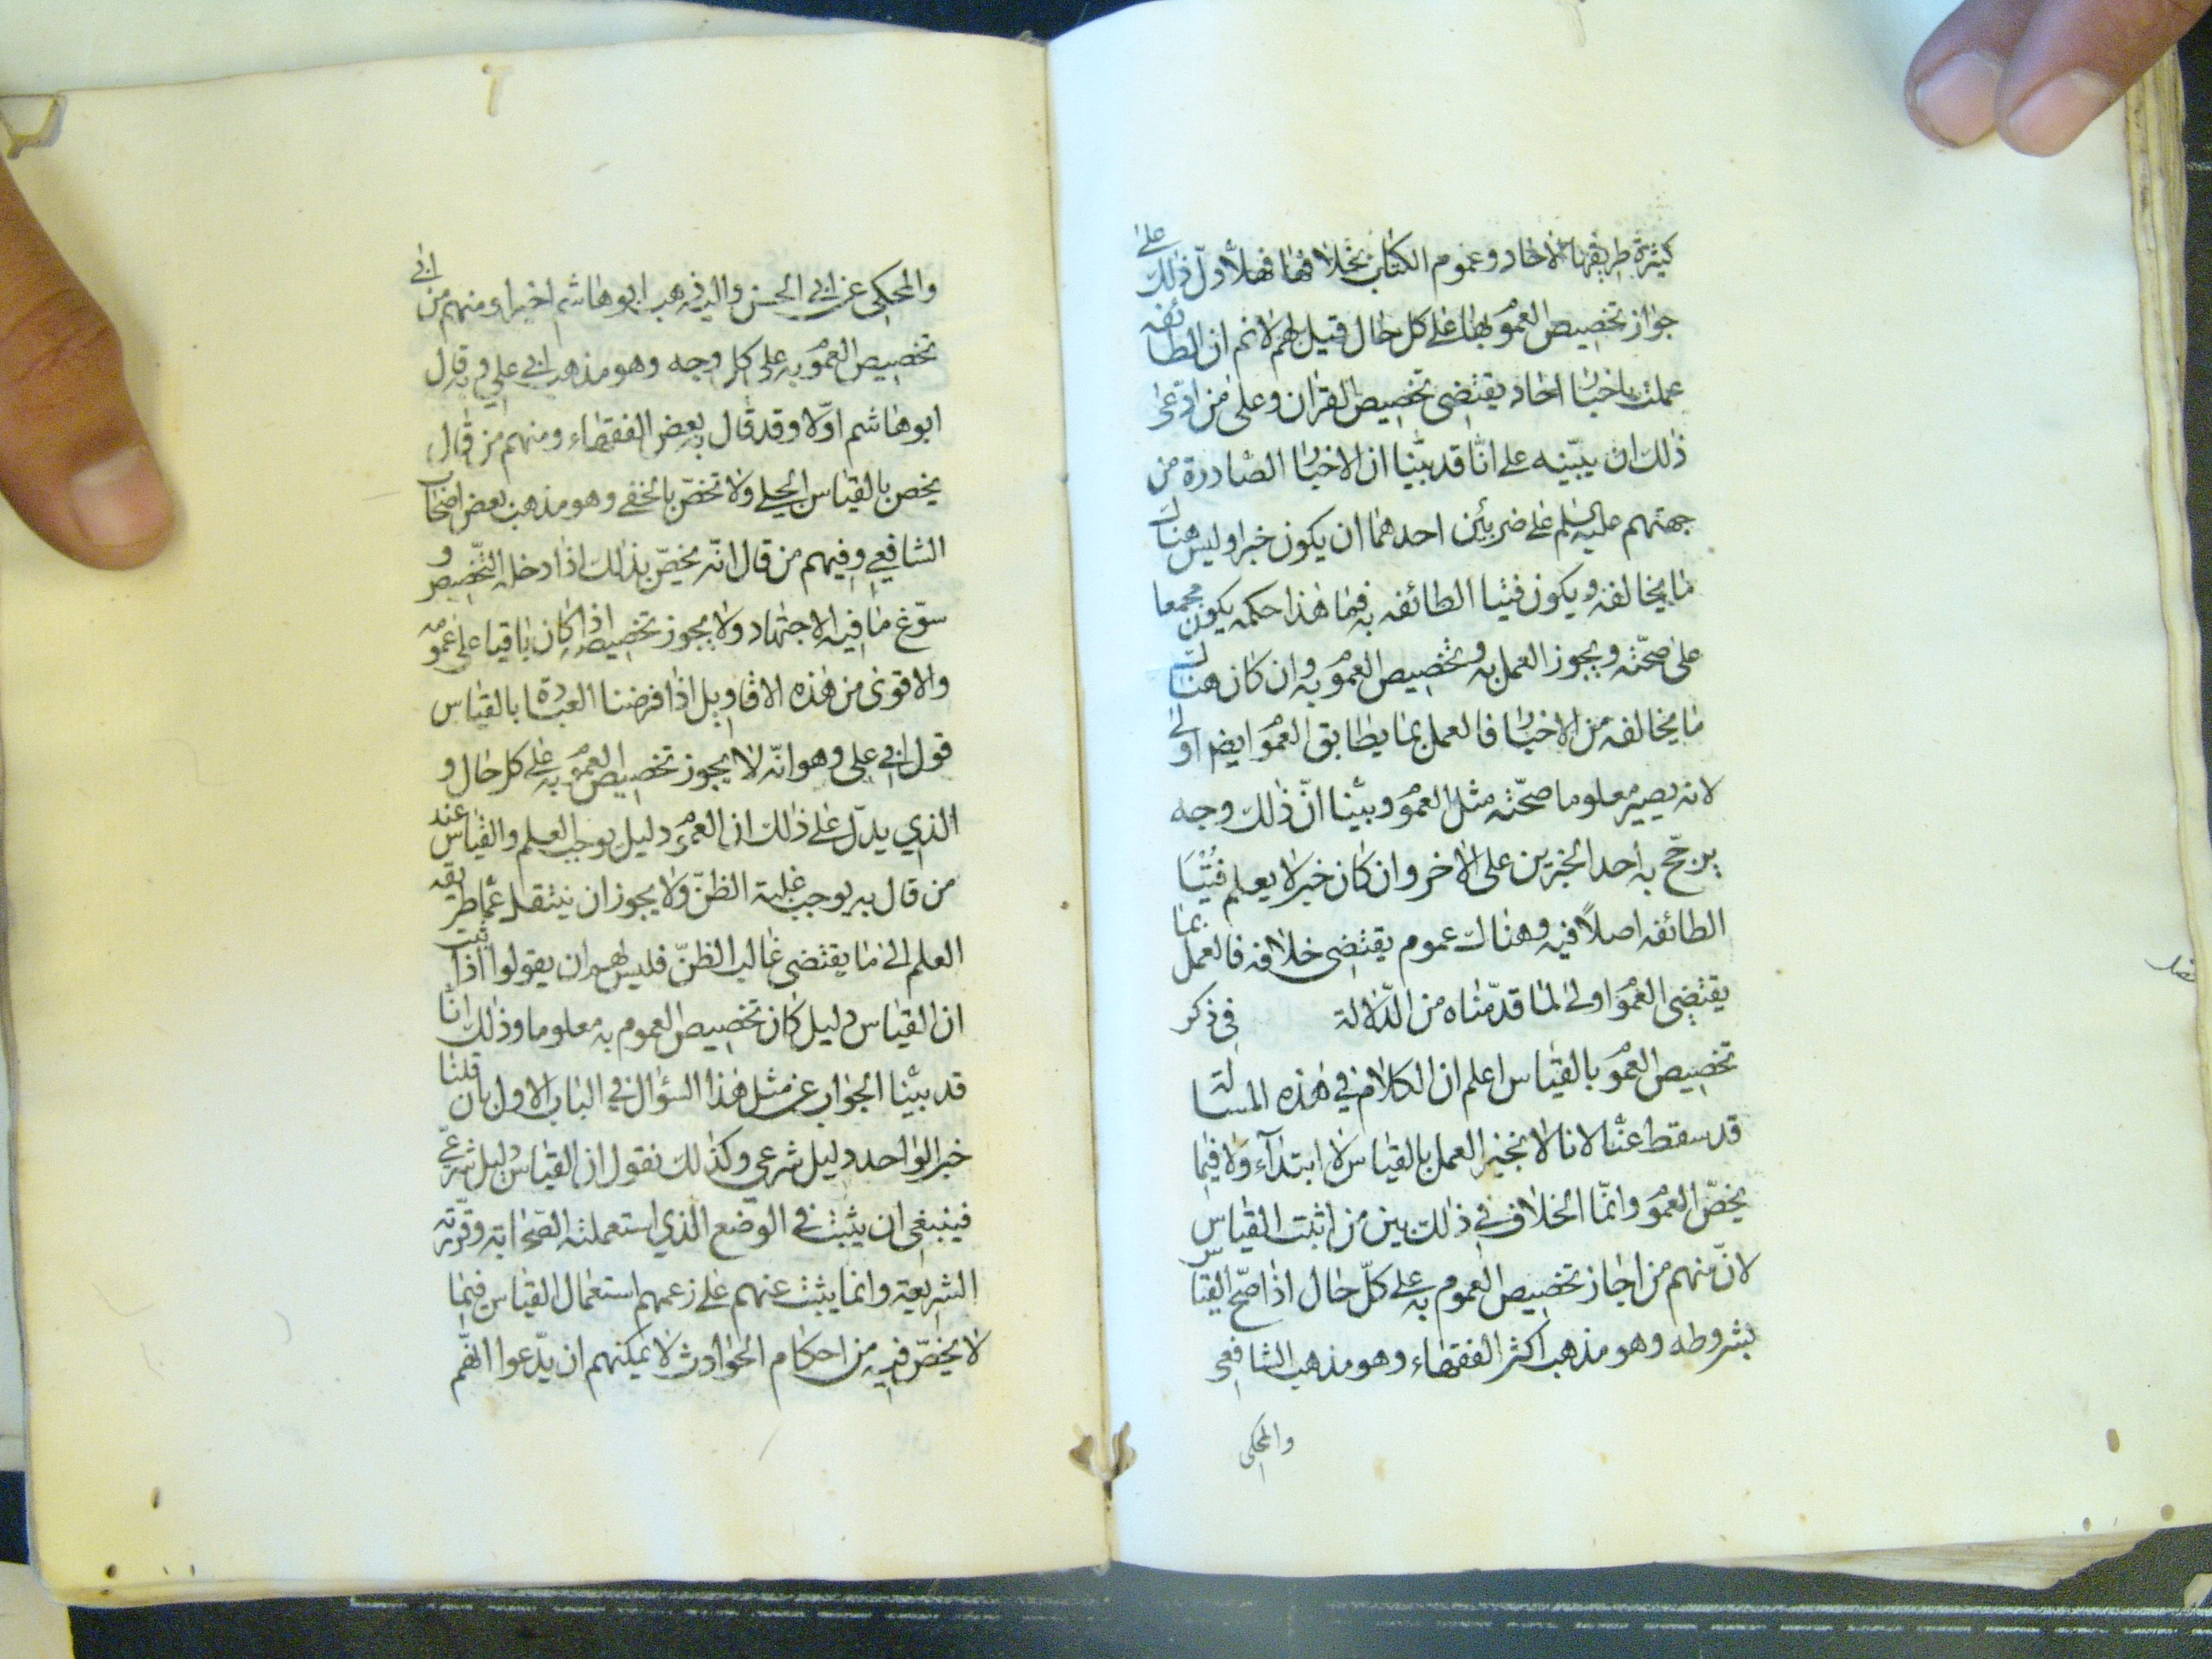 كثيرة طريقها الاحاد وعموم الكتاب بخلافها فهلا دل ذلك على
جواز تخصيص العموم بها على كل حال قيل لهم لا نم ان الطائفه
عملت باخبار احاد يقتضى تخصيص القران وعلى من ادعى
ذلك ان يبيّنه على انّا قد بيّنا ان الاخبار الصادرة من
جهتهم عليهم السلم على ضربين احدهما ان يكون خبرا وليس هناك
ما يخالفه ويكون فتيا الطائفه به فما هذا حكمه يكون مجمعا
على صحّته ويجوز العمل به وتخصيص العموم به وان كان هناك
ما يخالفه من الاخبار فالعمل بما يطابق العموم ايضم اولى
لانه يصير معلوما صحّته مثل العموم وبيّنا انّ ذلك وجه
يرجّح به احد الخبرين على الاخر وان كان خبر لا يعلم فُتْيَا
الطائفه اصلاً فيه وهناك عموم يقتضى خلافه فالعمل بما
يقتضى العموم اولى لما قدّمناه من الدّلالة في ذكر
تخصيص العموم بالقياس اعلم ان الكلام في هذه المسالة
قد سقط عنّا لانا لا نجيز العمل بالقياس لا ابتداء ولا فيما
يخصّ العموم وانّما الخلاف في ذلك بين من اثبت القياس
لانّ منهم من اجاز تخصيص العموم به على كلّ حال اذا صحّ القياس
بشروطه وهو مذهب اكثر الفقهاء وهو مذهب الشافعى
والمحكى
والمحكى عن ابي الحسن واليه ذهب ابو هاشم اخيرا ومنهم من ابى
تخصيص العموم به على كل وجه وهو مذهب ابي علي وبه قال
ابو هاشم اوّلا وقد قال به بعض الفقهاء ومنهم من قال
يخص بالقياس الجلي ولا تخصّ بالخفي وهو مذهب بعض اصحاب
الشافعي وفيهم من قال انّه يخصّ بذلك اذا دخله التّخصيص و
سوّغ ما فيه الاجتهاد ولا يجوز تخصيصه اذا كان باقيا على عمومه
والاقوى من هذه الاقاويل اذا فرضنا العبادة بالقياس
قول ابي علي وهو انّه لا يجوز تخصيص العموم به على كل حال و
الذي يدلّ على ذلك ان العموم دليل يوجب العلم والقياس عند
من قال به يوجب غلبة الظنّ ولا يجوز ان ينتقل عمّا طريقه
العلم الى ما يقتضى غالب الظنّ فليس لهم ان يقولوا اذا ثبت
ان القياس دليل كان تخصيص العموم به معلوما وذلك انّا
قد بيّنا الجواب عن مثل هذا السؤال في الباب الاول بان قلنا
خبر الواحد دليل شرعي وكذلك نقول ان القياس دليل شرعّي
فينبغى ان يثبت في الوضع الذي استعملته الصّحابة وقرّرته
الشريعة وانما يثبت عنهم على زعمهم استعمال القياس فيما
لا يخصّ فيه من احكام الحوادث لا يمكنهم ان يدّعوا انهّم